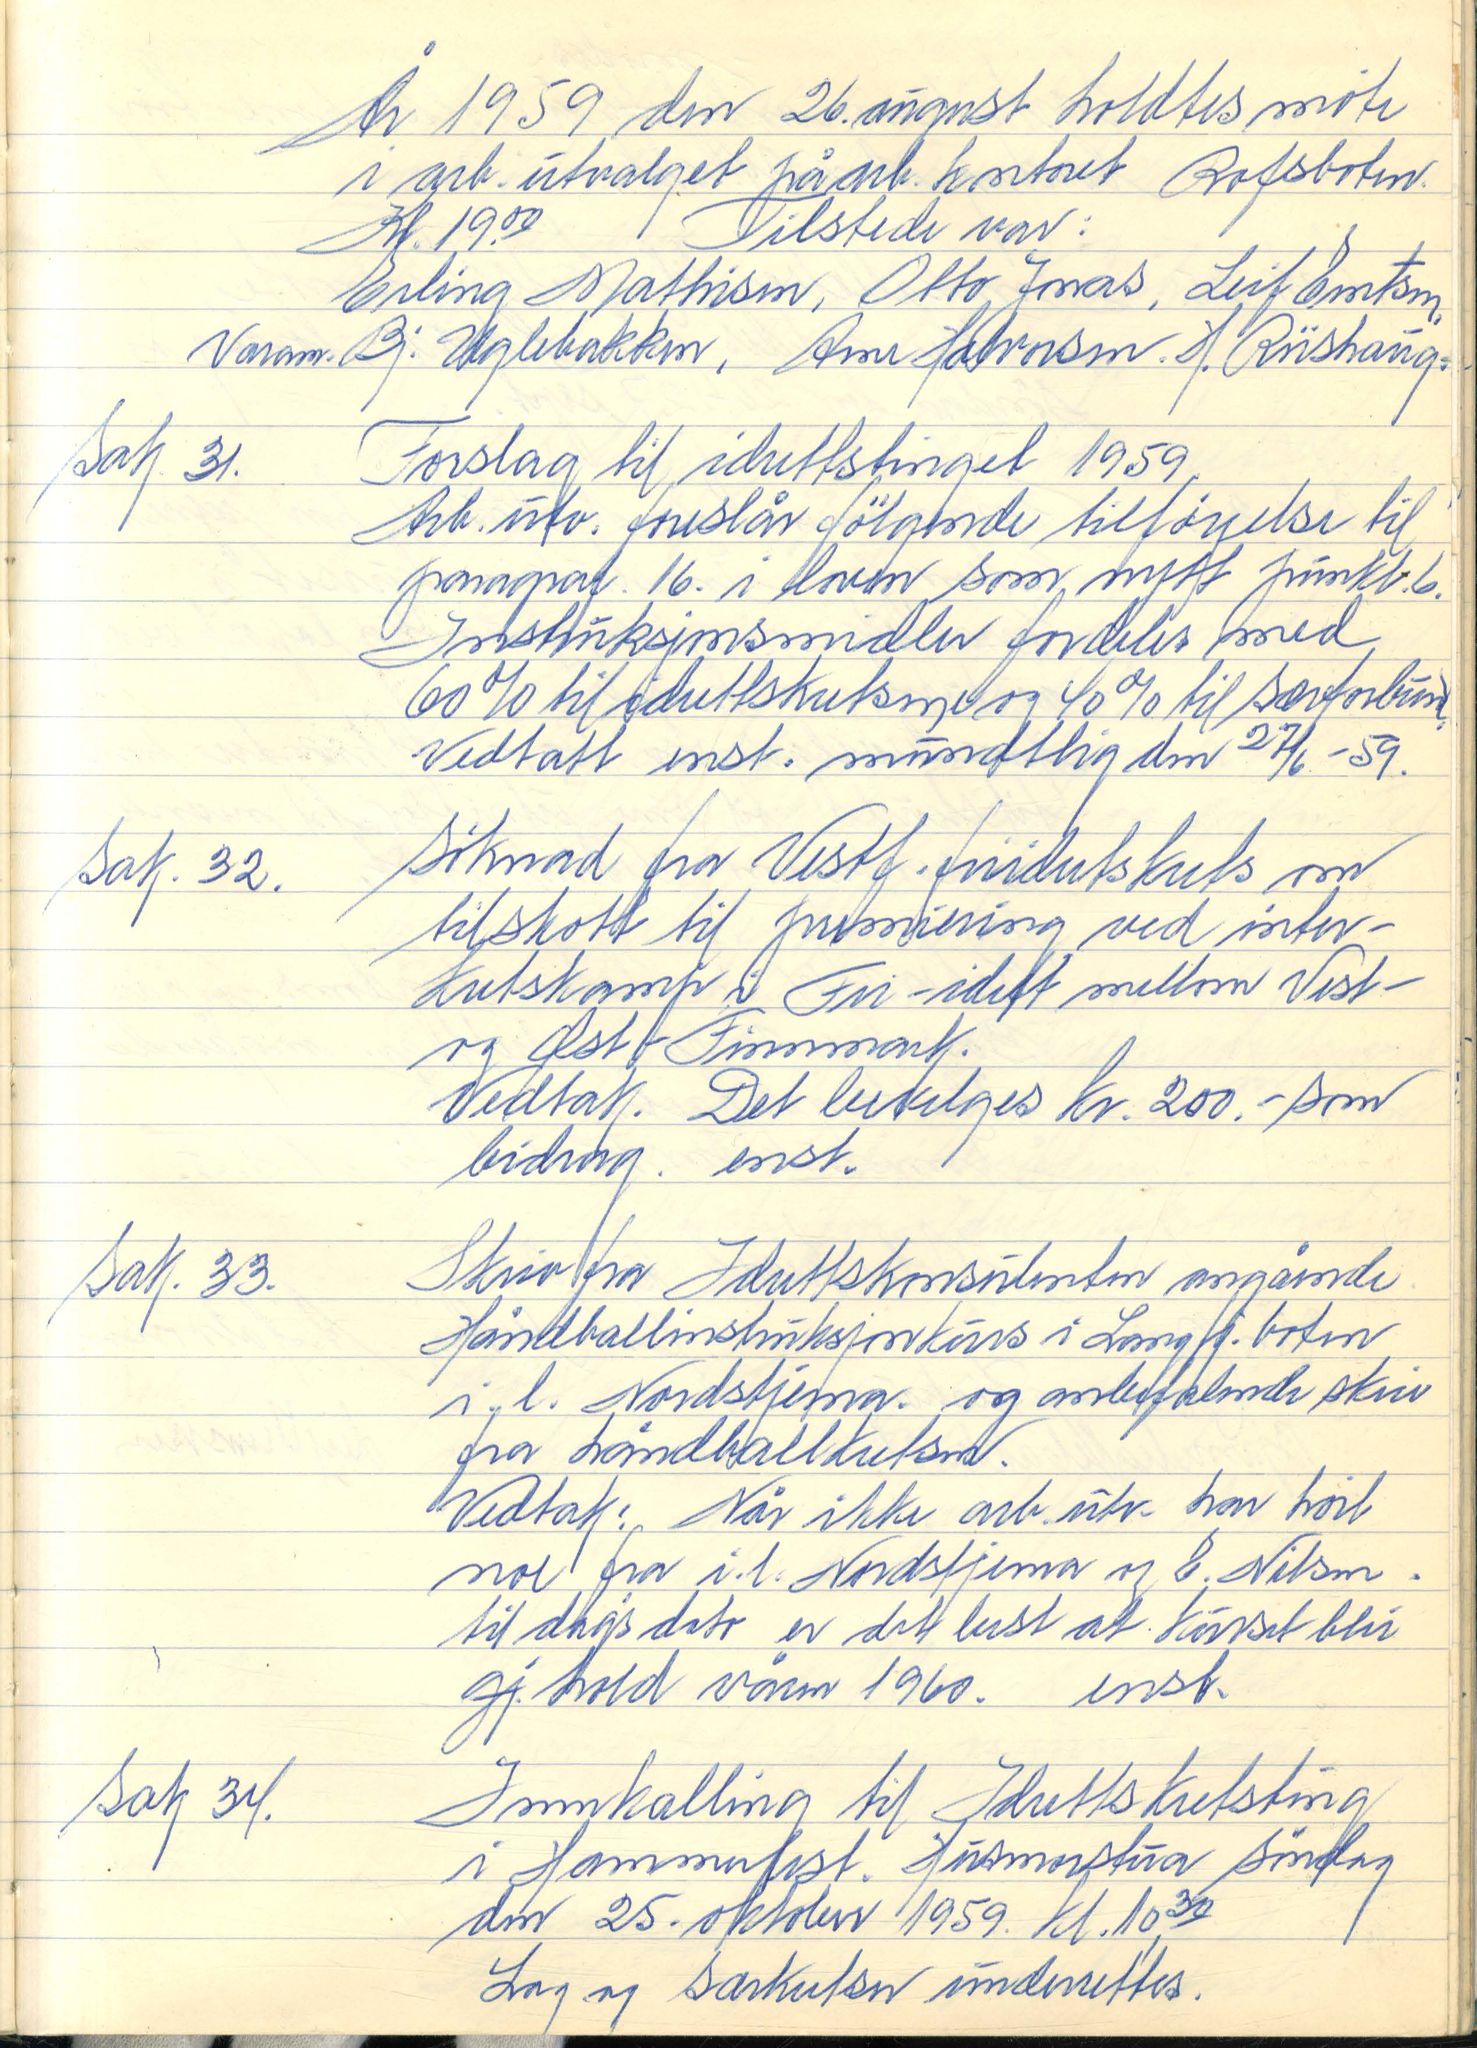 År 1959 den 26. august holdtes møte
i arb. utvalget på arb. kontoret Rofsbotn.
Kl. 19.00 Tilstede var:
Erling Mathisen, Otto Jonas, Leif
Varam. Bj. Uglebakken, Arne Halvorsen. H. Riishaug.
Sak. 31. Forslag til idrettstinget 1959.
Arb. utv. foreslår følgende tilføyelse til
paragraf. 16. i loven som nytt punkt. 6.
Instruksjonsmidler fordeles med
60% til idrettskretsene og 40% til særforbund.
Vedtatt enst. mundtlig den 27/6 - 59.
Sak. 32. Søknad fra Vestf. friidrettskrets om
tilskott til premiering ved inter-
kretskamp i Fri-idrett mellom Vest-
og Øst-Finnmark.
Vedtak. Det bevilges kr. 200.- som
bidrag. enst.
Sak. 33. Skriv fra Idrettskonsulenten angående
Håndballinstruksjonkurs i Langfj.botn
i.l. Nordstjerna. og anbefalende skriv
fra håndballkretsen.
Vedtak: Når ikke arb. utv. har hørt
noe fra i.l. Nordstjerna og E. Nilsen.
til dags dato er det best at kurset blir
gj. hold våren 1960. enst.
Sak 34. Innkalling til Idrettskretsting
i Hammerfest. Husmorstua Søndag
den 25. oktober 1959. kl. 10.30
Lag og særkretser underrettes.